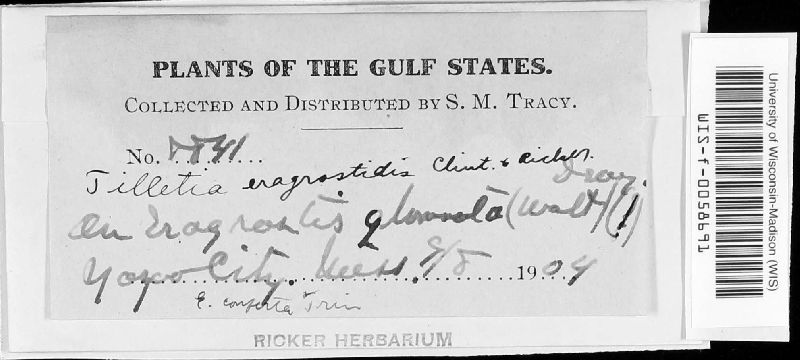 PLANTS OF THE GULF STATES.
COLLECTED AND DISTRIBUTED BY S. M. TRACY.
No. 8841
Tilletia eragrostidis Clint. & Ricker.
On Eragrostis glomerata (Walt) Dewey. (!)
Yazoo City. Miss. 9/8 1904
E. conferta Trin
RICKER HERBARIUM
University of Wisconsin-Madison (WIS)
WIS-f-0058691